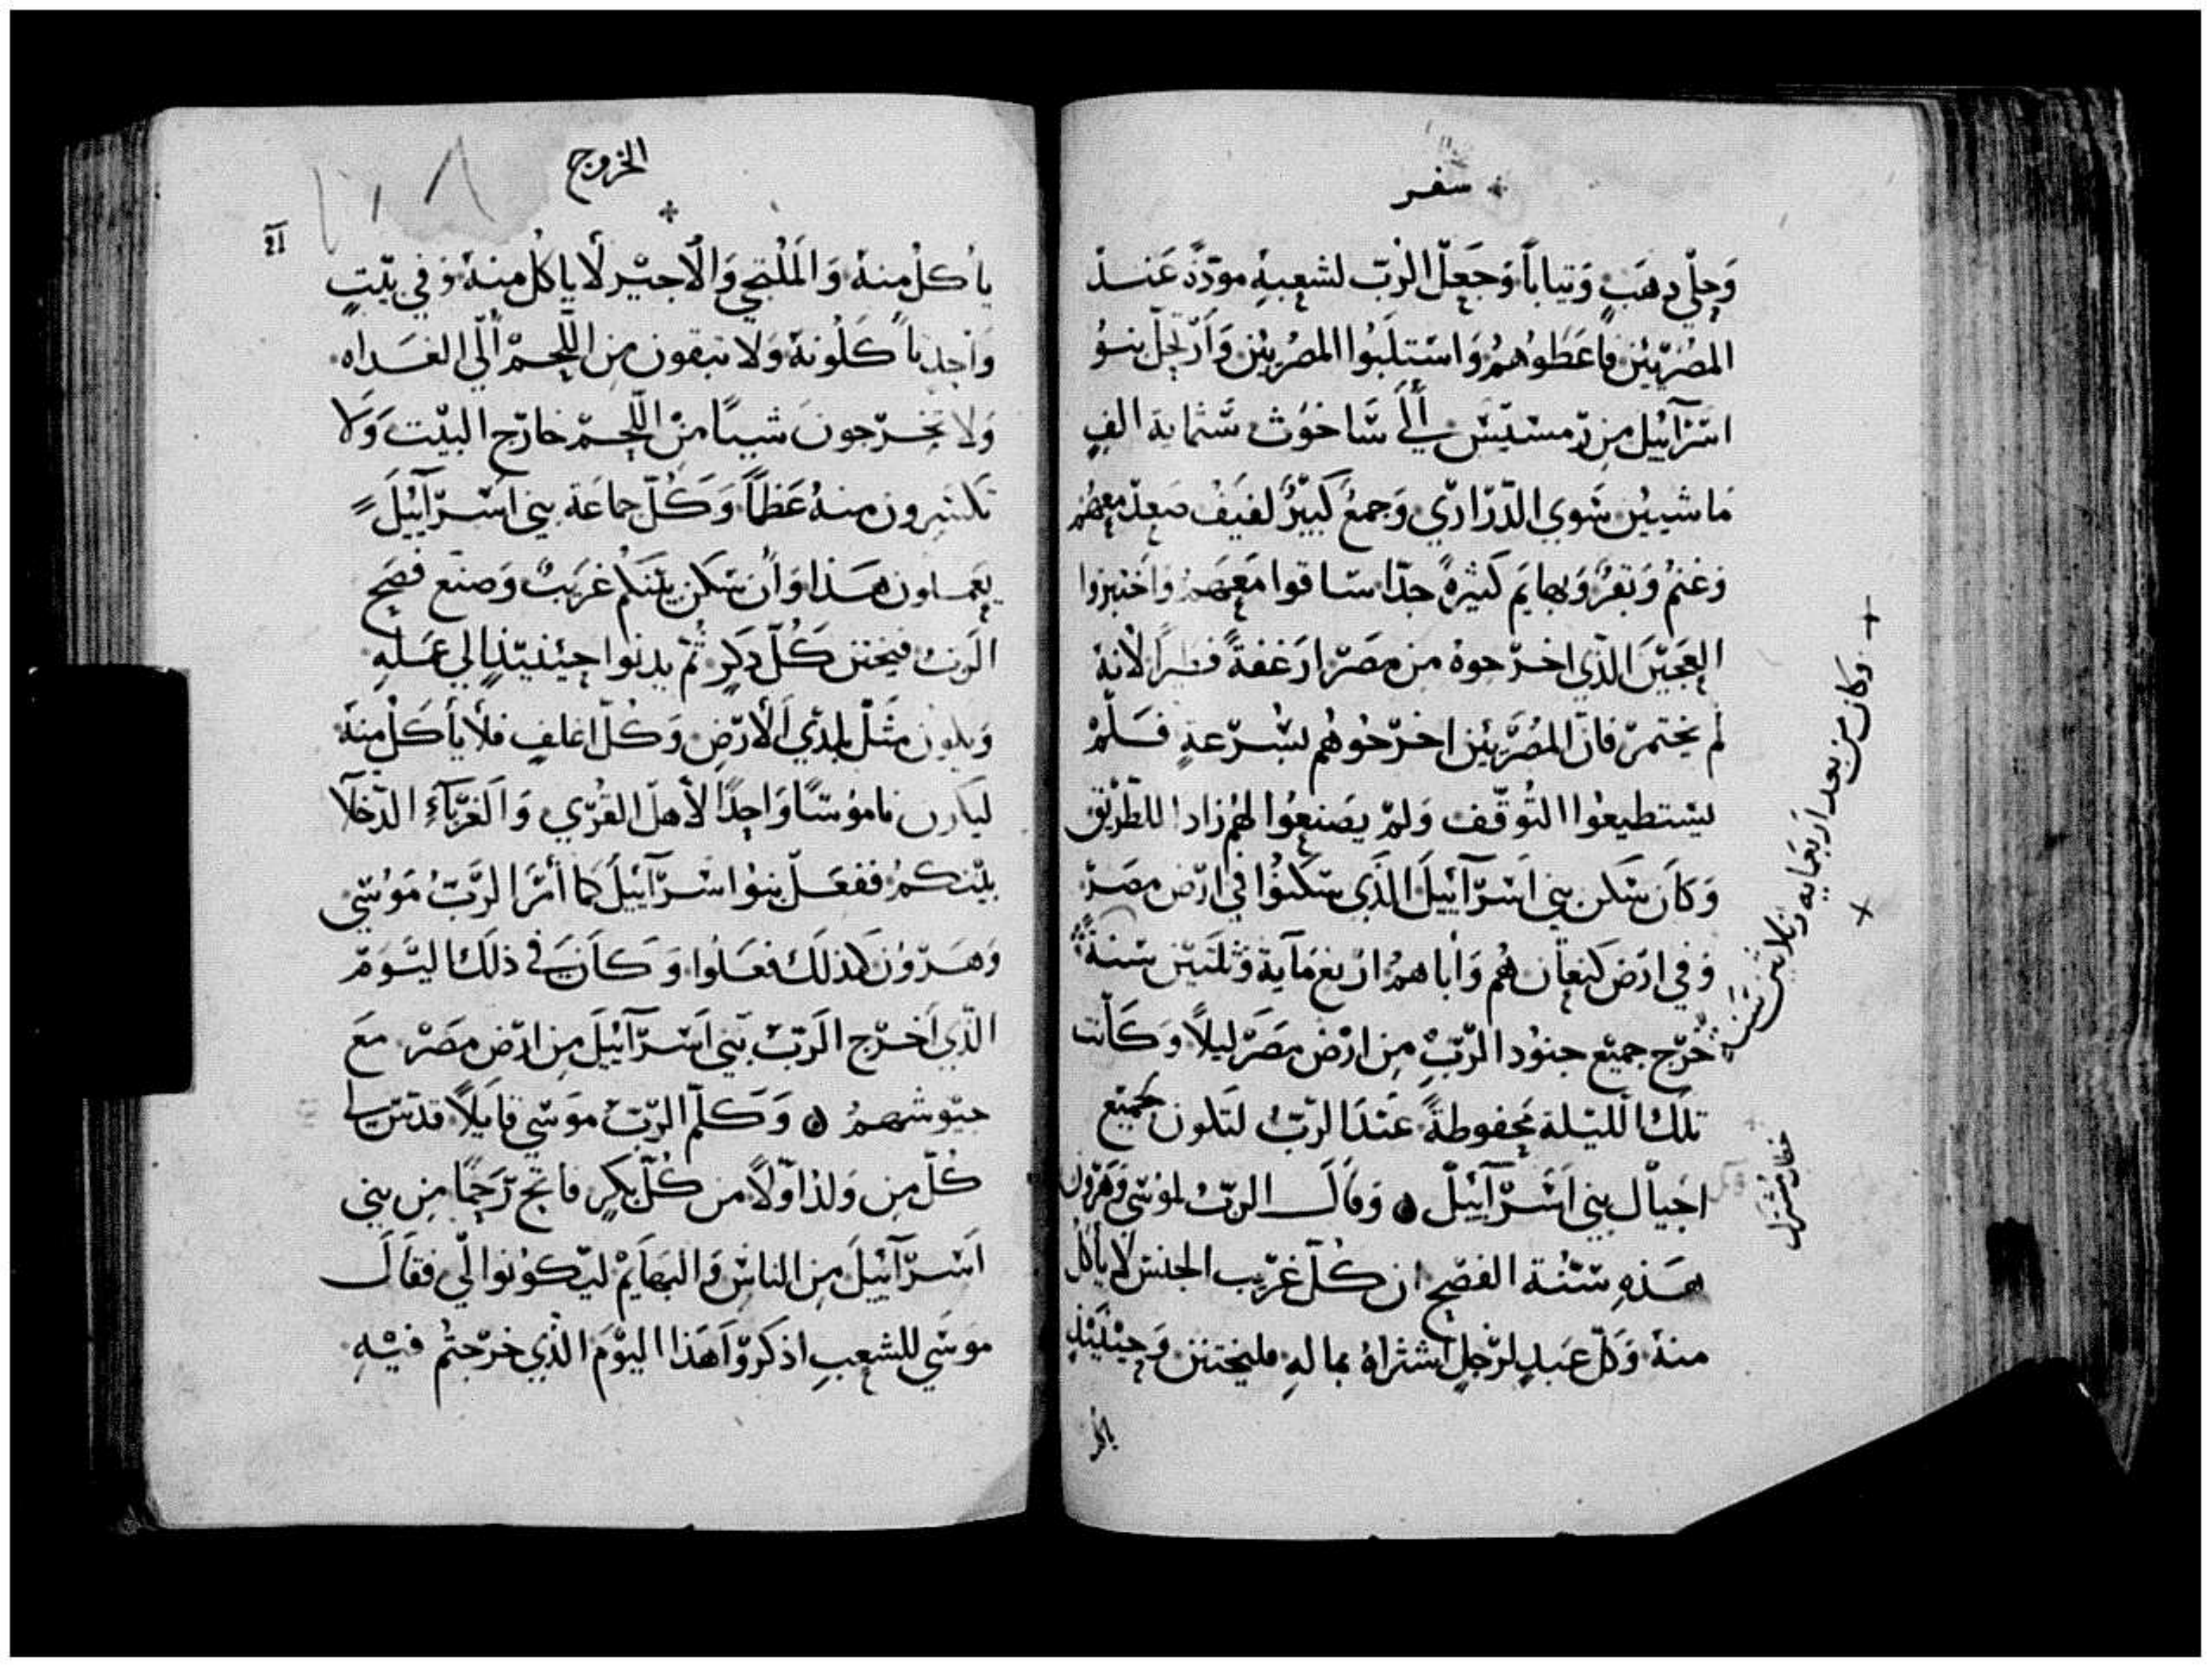 سفر
وَحِلّي دهَبٍ وَتياباً وَجَعَلّ الرّبّ لشعبهِ مودّةً عَند
المصُرّييّن فاعَطَوُاهمُ وَاسَتلَبُوا المصُريِيْن وَأرّتحِلّ بنوُ
اسّرَآئيْل مِن رّمسيّسّ إلَي سَّاخوُث سّتماية الفٍ
مَاشييْن سَوي الذّرَاريّ وَجمعُ كَبيْرُ لفيَفُ صعِدّ معهمُ
وَغنمُ وَبقرُ وَبهايَم كَثيْرهً جدّا سّاقوا مَعهَمْ وَاخَتبزوا
العَجيْنَ الذّي اخرّجوهُ مِن مصَرّ ارَغفةً فطيراً لانهُ
لم يختمرّ فانّ المُصرّييْن اخرّجُوهُم بسُّرّعةٍ فسَلمّ
يسّتطيعوُا التُوقّف وَلمّ يصَنعوُا لهمُ زادا للطّريْق
وَكاَن سَكن بني اسّرَآئيْلَ الذّي سَكنوُا في ارّض مصَرّ
وَفي ارَض كَنعاَن هُم وَاباهمُ ارّبعَمَآية وَثلثيّن سّنةً
خُرّج جميْع جنوُد الرّبّ مِن ارْض مصَرّ ليلاً وَكاَنت
تلَكَ الليّلة محَفوظةً عَندَ الرّبّ لتَكون لجميْع
اجيْاْل بني اسّرّآئيْلّ ۞ وَقاَل الربّ لموُسّي وَهَرّوُن
هَذهِ سّنُة الفصّح ان كُلّ غرّيب الجنسّ لا يأكلُ
منهُ وَكلّ عبَدٍ لرّجلٍ اشتراهُ بمالهِ فليختتن وَحيْنَيْذٍ
ياكل
وكان من بعد اربعمايه وثلاثين سنه
الخروج
يأكلُ منهُ وَالمَلُتجي وَالاجيْر لا ياكُل منهُ وَفي بيّتٍ
وَاحِدٍ تأكَلوُنهُ وَلا تبقون مِن اللّحمْ اِلّي الغَداه
وَلا تخِرّجونَ شيياً منْ اللّحمّ خارّج البيّت وَلا
تكسّرون منهُ عَظماً وَكُلّ جماعَة بني اسّرّآئيْلَ
يعمَلون هَذا وَاْن سَكن بيْنكمُ غرَيبٌ وَصنع فصَح
الرّبّ فيختن كُلّ ذكرٍ ثمُّ يدنوا حيْنيّذٍ اِلي عَملهِ
وَيكوُن مثَلّ بلديّ الاْرّض وَكُلّ اغلفٍ فلا يأكَلْ منهَ
ليَكون ناموُسّا وَاحِدًا لاهلّ القُرّي وَالغرّبَآءِ الدّخَلآ
بيْنكمُ ففعَلّ بنوُا اسّرّآئيْلَ كما أمَرَ الرّبّ مَوُسّي
وَهَرّوُن كَذلكَ فعَلوُا وَكَاَن في ذلَكَ اليّومّ
الذّي اَخرّج الرَبّ بني اَسّرّآئيْلَ مِن ارّض مصَرْ معَ
جيّوشهمُ ۞ وَكلّم الرّبّ موَسّي قايَلاً قدّسّ لي
كُلّ مِن وَلد اوّلاً من كُلّ بكرٍ فاتح رّحَماً مِن بني
اسّرّآئيْلَ مِن الناسّ وَالبهَايَمْ ليكوُنوا لّي فقاَل
موَسّي للشعبِ اذكرّوَا هَذا اليْوَمَ الذّي خرّجتُم فيْهِ